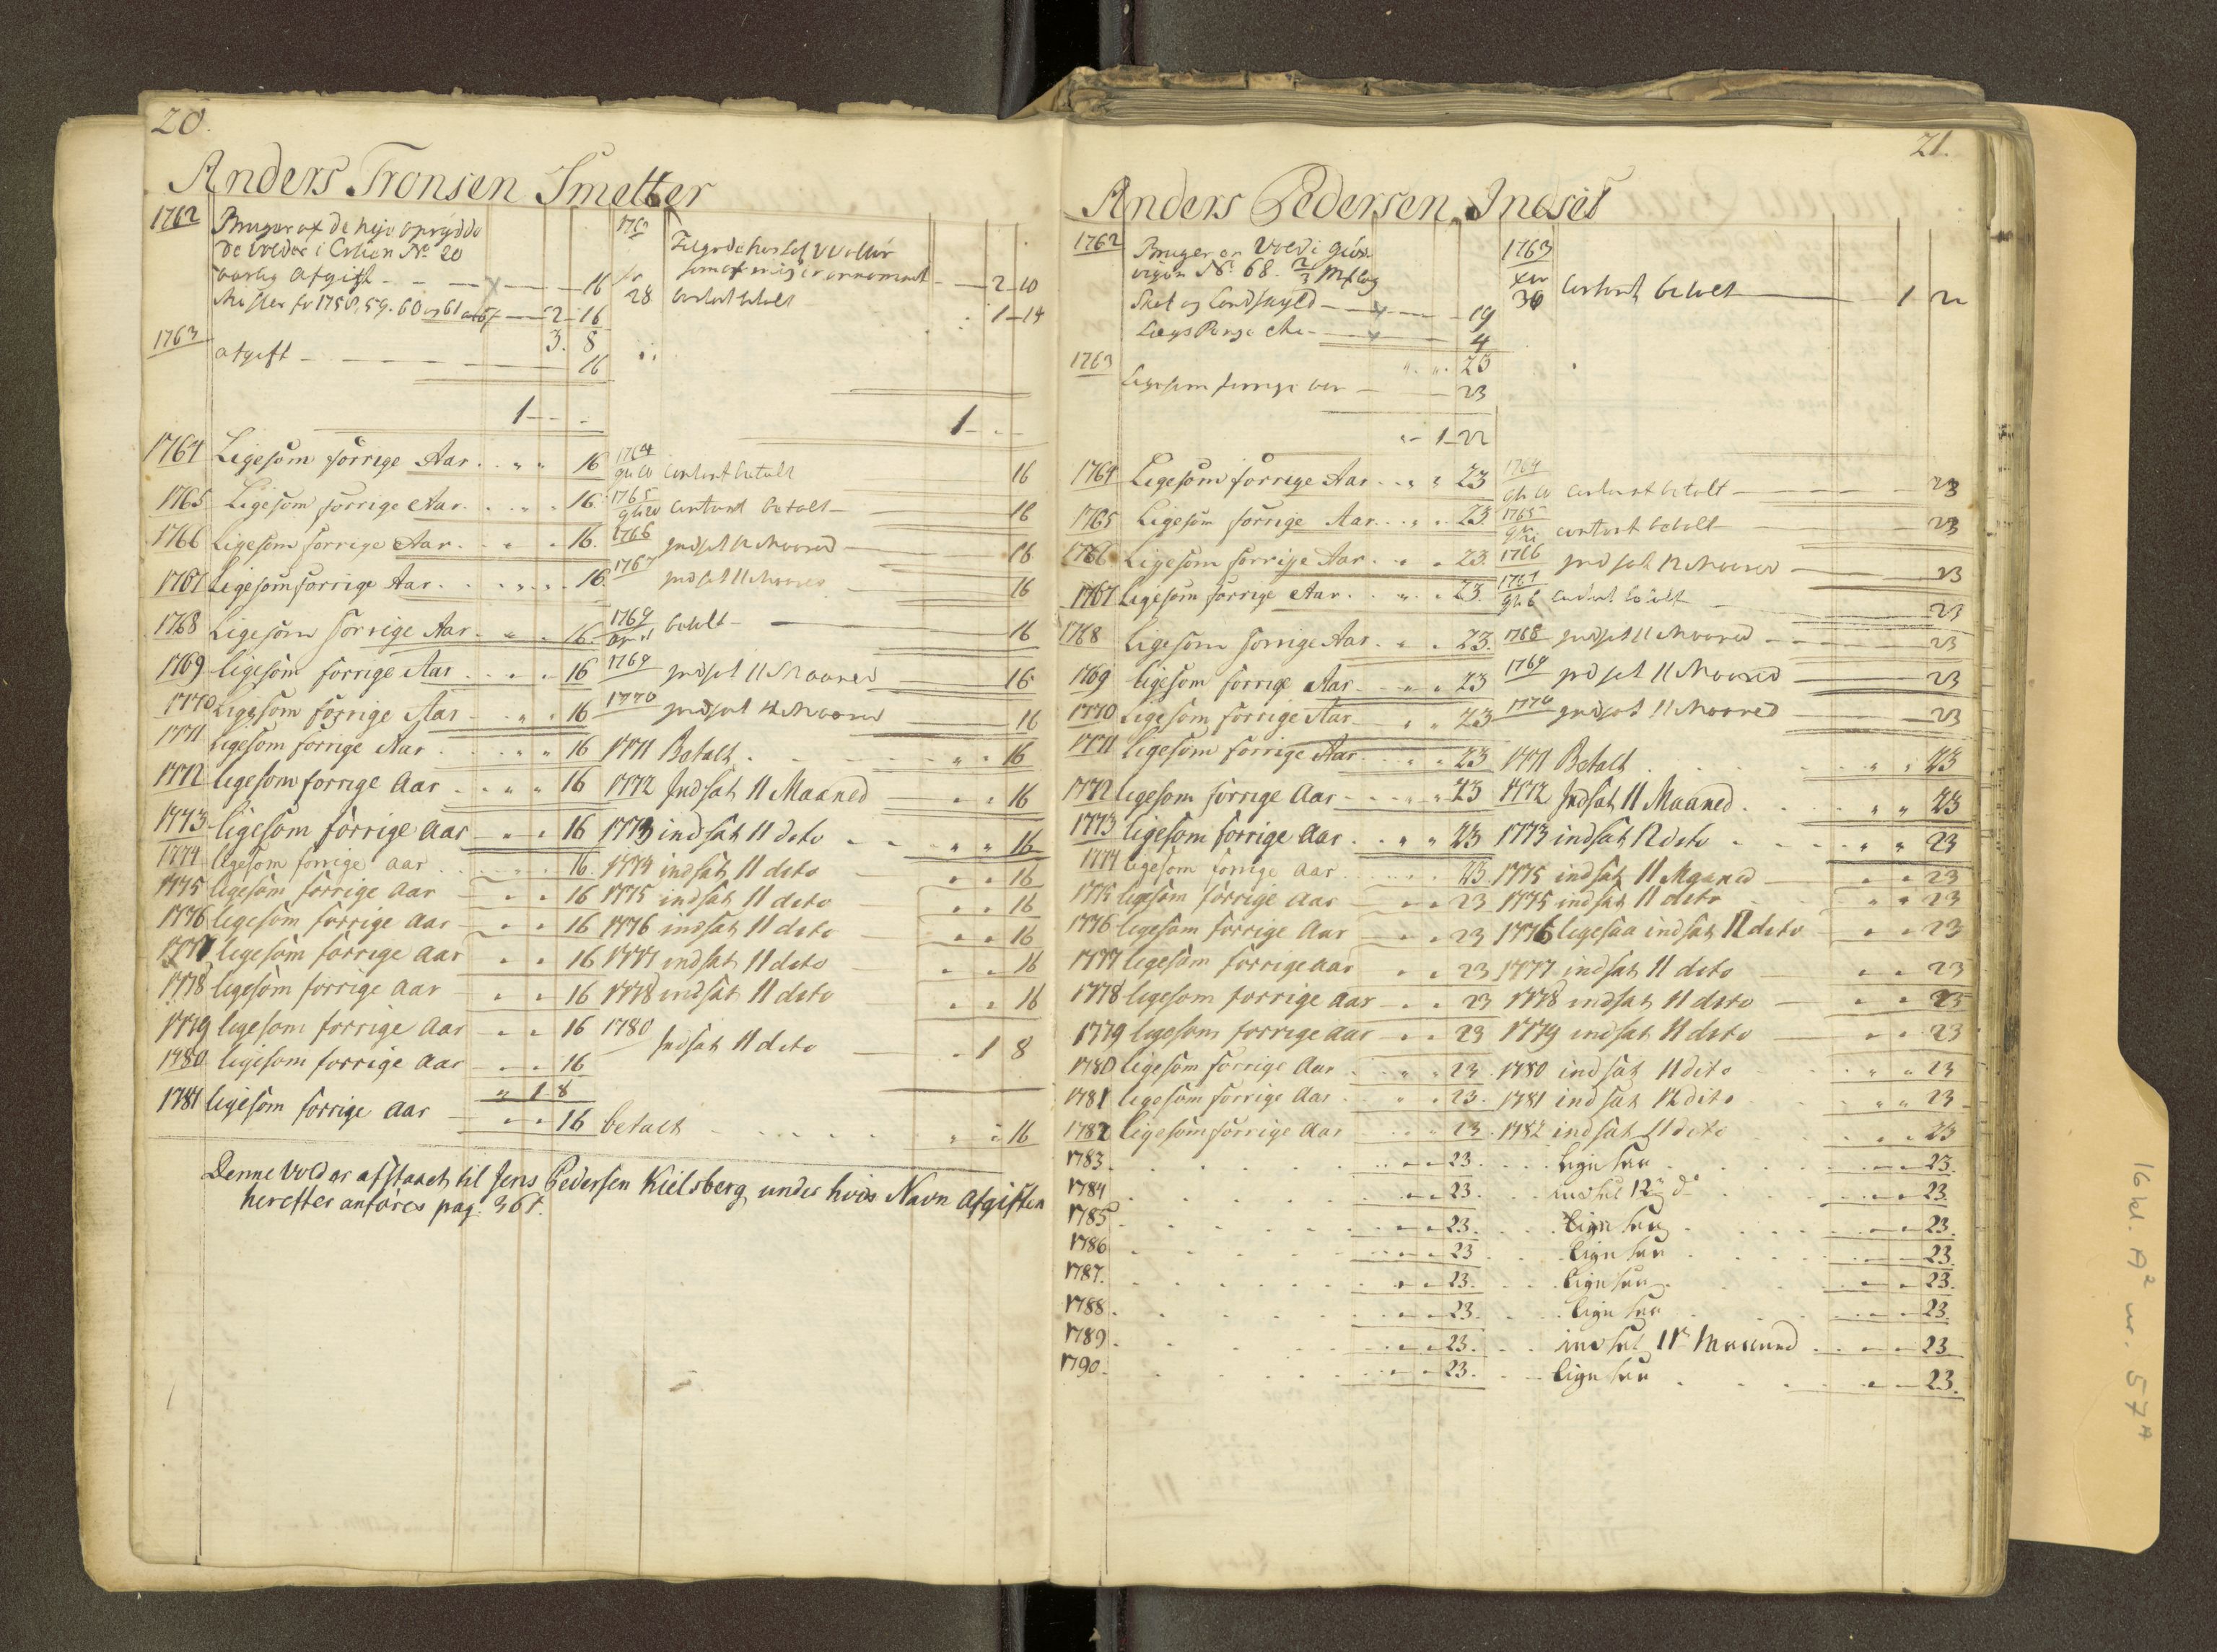 20.
Anders Tronsen Smelter
1762 Bruger af de nÿe oprÿdde
de Volde i Lien No 20
aarlig Afgift 16
Rester for 1758, 59. 60 og 61 2 16
3. 8
1763 afgift 16
1
1763
28 contant betalt 1 14
som af mig er annammet 2 10
1
1764 Ligesom forrige Aar 16 1764 contant betalt 16
1765 Ligesom forrige Aar 16 1765 contant betalt 16
1766 Ligesom forrige Aar 16. 1766 Indsat 12 Maaned 16
1767 Ligesom forrige Aar 16. 1767 Indsat 11 Maaned 16
1768 Ligesom forrige Aar 16 1769 betalt 16
1769 ligesom forrige Aar 16 1769 Indsat 11 Maaned 16
1770 Ligesom forrige Aar 16 1770 Indsat 12 Maaned 16
1771 ligesom forrige Aar 16 1771 Betalt 16
1772 ligesom forrige Aar 16 1772 Indsat 11 Maaned 16
1773 ligesom forrige Aar 16 1773 indsat 11 dito 16
1774 ligesom forrige aar 16. 1774 indsat 11 dito 16
1775 ligesom forrige Aar 16 1775 indsat 11 dito 16
1776 ligesom forrige Aar 16 1776 indsat 11 dito 16
1777 ligesom forrige Aar 16 1777 indsat 11 dito 16
1778 ligesom forrige Aar 16 1778 indsat 11 dito 16
1779 ligesom forrige Aar 16 1780
Indsat 11 dito 1 8
1780 ligesom forrige Aar 16
" 1. 8
1781 ligesom forrige Aar 16 betalt 16
Denne Vold er afstaaet til Jens Pedersen Kielsberg under hvis Navn Afgiften
herefter anføres pag. 361.
21.
Anders Pedersen Indset
1762 Bruger en Vold i
No 68. 2/3 Mæling
Skat og Landskyld 19
4
23
1763 Ligesom forrige aar 23
1 22
1763
30 contant betalt 1 22
1764 Ligesom forrige Aar 23 1764 contant betalt 23
1765 Ligesom forrige Aar 23. 1765 contant betalt 23
1766 Ligesom forrige Aar 23. 1766 Indsat 12 Maaned 23
1767 Ligesom forrige Aar 23. 1767 contant betalt 23
1768 Ligesom forrige Aar 23. 1768 Indsat 11 Maaned 23
1769 ligesom forrige Aar 23 1769 Indsat 11 Maaned 23
1770 Ligesom forrige Aar 23 1770 Indsat 11 Maaned 23
1771 ligesom forrige Aar 23 1771 Betalt 23
1772 ligesom forrige Aar 23 1772 Indsat 11 Maaned 23
1773 ligesom forrige Aar 23 1773 indsat 12 dito 23
1774 ligesom forrige aar 23. 1775 indsat 11 Maaned 23
1775 ligesom forrige Aar 23 1775 indsat 11 dito 23
1776 ligesom forrige Aar 23 1776 ligesaa indsat 12 dito 23
1777 ligesom forrige aar 23 1777 indsat 11 dito 23
1778 ligesom forrige Aar 23 1778 indsat 11 dito 23
1779 ligesom forrige Aar 23 1779 indsat 11 dito 23
1780 ligesom forrige Aar 23. 1780 indsat 11 dito 23
1781 ligesom forrige Aar 23. 1781 indsat 12 dito 23
1782 ligesom forrige Aar 23. 1782 indsat 11 dito 23
1783. 23. ligesaa 23.
1784 23. indsat 12 do 23.
1785 23. ligesaa 23.
1786 23 ligesaa 23.
1787. 23. ligesaa 23.
1788. 23. ligesaa 23.
1789. 23. indsat 11 Maaned 23
1790. 23. ligesaa 23.
16 kl. A2 nr. 57A